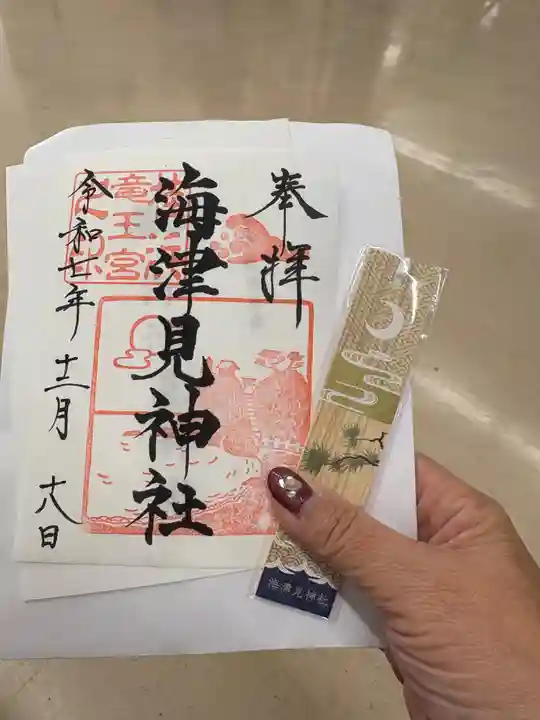 奉拝
海津見神社
竜王宮
令和七年 十二月 十八日
海津見神社